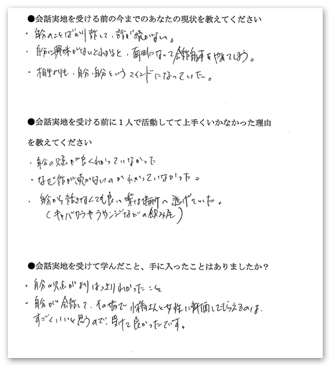 ●会話実地を受ける前の今までのあなたの現状を教えてください
・自分のことばかり話して、話が続かない。
・自分に興味がないとわかると、面倒になって会話自体をやめてしまう。
・相手よりも、自分・自分というマインドになっていた。
●会話実地を受ける前に１人で活動してて上手くいかなかった理由
を教えてください
・自分の欠点が良くわかっていなかった
・なぜ話が続かないのかわかっていなかった。
・自分から話さなくても良い場所へ逃げていた。
（キャバクラやラウンジなどの飲み屋）
●会話実地を受けて学んだこと、手に入ったことはありましたか？
・自分の欠点がよりはっきりわかったこと
・自分が会話して、その場で 講師さんと女性に評価してもらえるのは、
すごくいいと思うので、受けて良かったです。